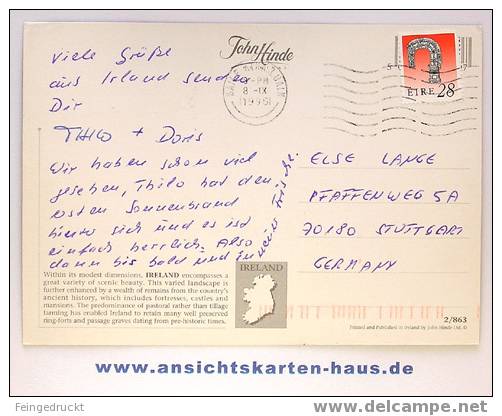 Viele Grüße
aus Irland senden
Dir
THILO + DORIS
Wir haben schon viel
gesehen, Thilo hat den
ersten Sonnenbrand
hinter sich und es ist
einfach herrlich. Also
dann bis bald und in
John Hinde
8-IX
ÉIRE 28
ELSE LANGE
PFAFFENWEG 5A
70180 STUTTGART
GERMANY
Within its modest dimensions, IRELAND encompasses a
great variety of scenic beauty. This varied landscape is
further enhanced by a wealth of remains from the country's
ancient history, which includes fortresses, castles and
mansions. The predominance of pastoral rather than tillage
farming has enabled Ireland to retain many well preserved
ring-forts and passage graves dating from pre-historic times.
IRELAND
2/863
Printed and Published in Ireland by John Hinde Ltd.
www.ansichtskarten-haus.de
Feingedruckt
DELCAMPE.NET